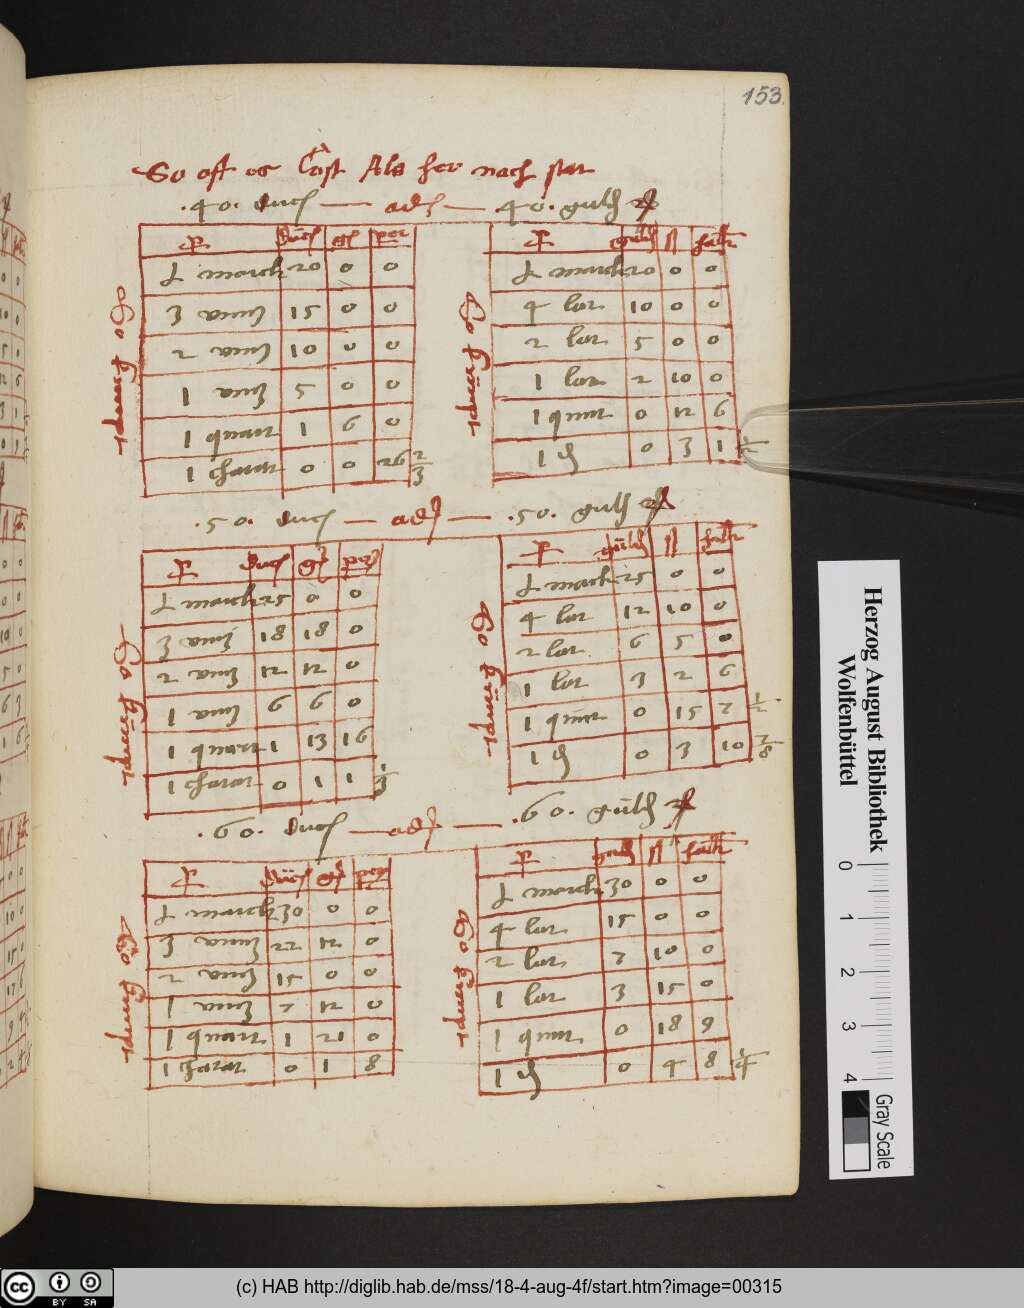 153.
So oft es Cost Als her nach stat
.40. duc — adj — .40. guld
duc gs per
½ march 20 0 0
3 15 0 0
2 10 0 0
1 5 0 0
1 quart 1 6 0
1 charat 0 0 26 2/3
guld ß hall
½ march 20 0 0
4 lot 10 0 0
2 lot 5 0 0
1 lot 2 10 0
1 quint 0 12 6
1 0 3 1 1/2
.50. duc — adj — .50. guld
duc gs per
½ march 25 0 0
3 18 18 0
2 12 12 0
1 6 6 0
1 quart 1 13 16
1 charat 0 1 1 1/3
guld ß hall
½ march 25 0 0
4 lot 12 10 0
2 lot 6 5 0
1 lot 3 2 6
1 quint 0 15 7 1/2
1 0 3 10 7/8
.60. duc — adj — .60. guld
duc gs per
½ march 30 0 0
3 22 12 0
2 15 0 0
1 7 12 0
1 quart 1 21 0
1 charat 0 1 8
guld ß hall
½ march 30 0 0
4 lot 15 0 0
2 lot 7 10 0
1 lot 3 15 0
1 quint 0 18 9
1 0 4 8 1/4
Herzog August Bibliothek
Wolfenbüttel
0 1 2 3 4
Gray Scale
cc BY SA
(c) HAB http://diglib.hab.de/mss/18-4-aug-4f/start.htm?image=00315